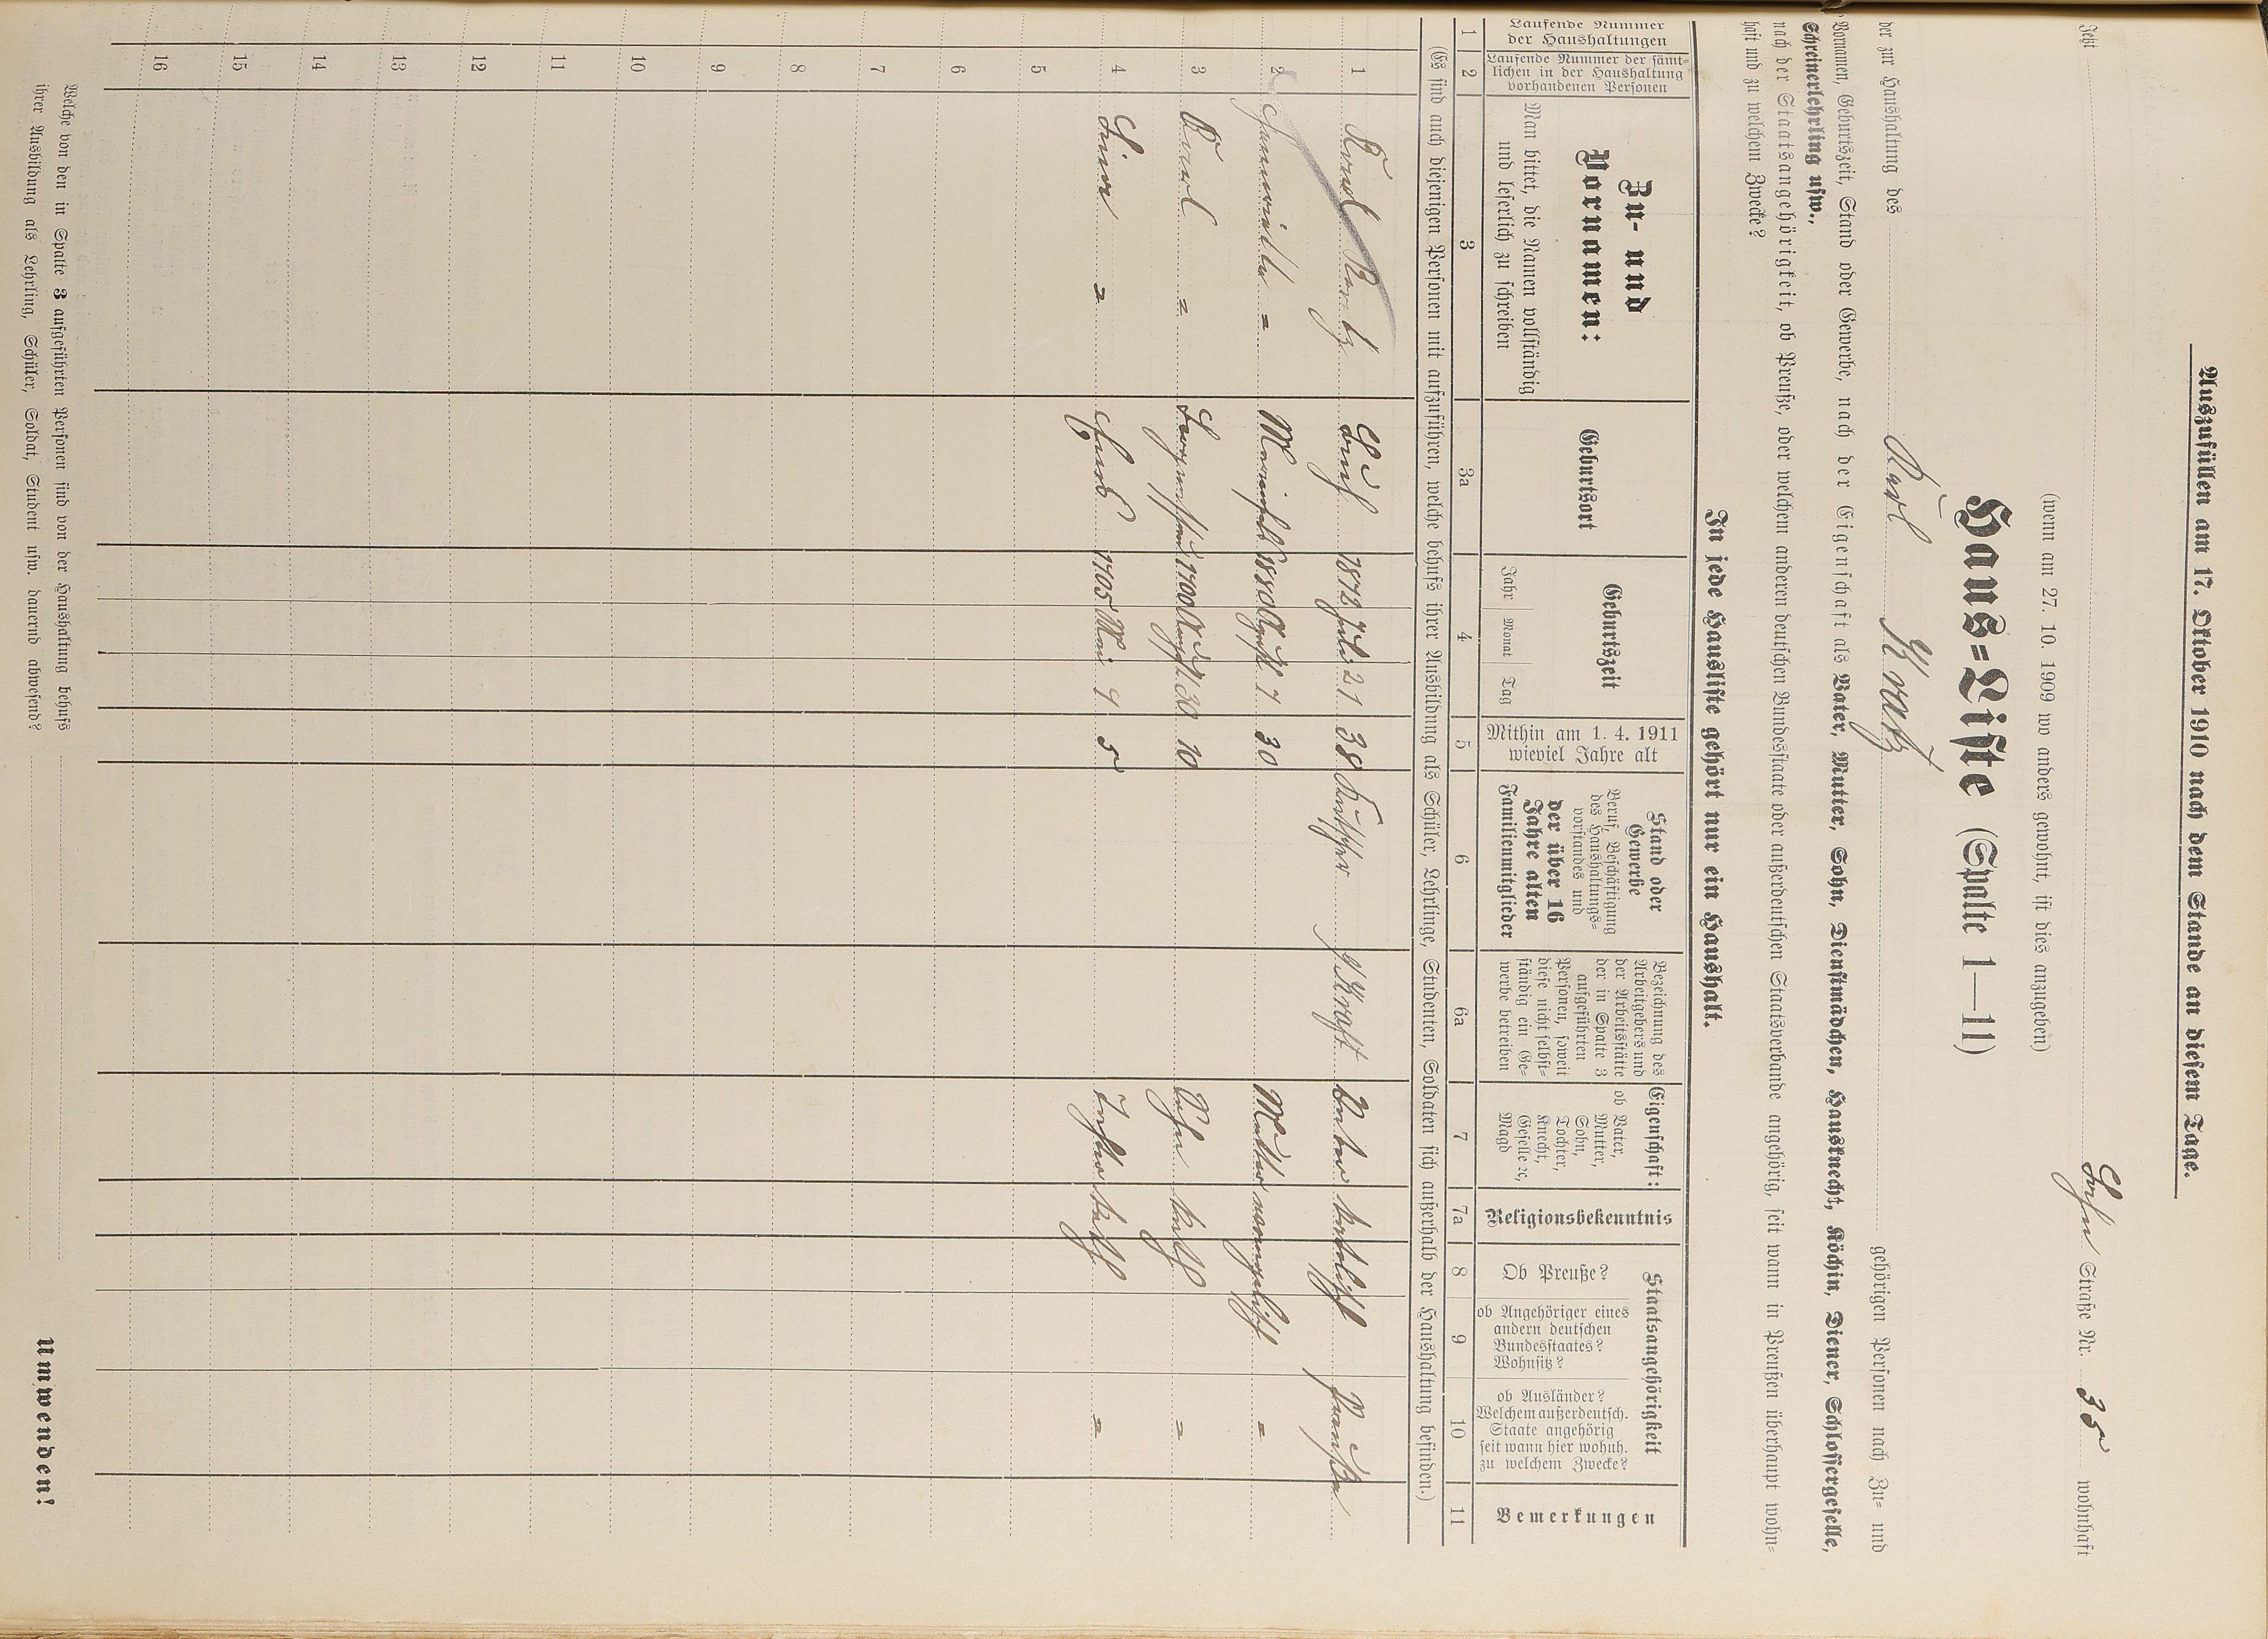 Auszufüllen am 17. Oktober 1910 nach dem Stande an diesem Tage.
Jetzt Lahn Straße Nr. 35 wohnhaft
(wenn am 27. 10. 1909 wo anders gewohnt, ist dies anzugeben)
Haus=Liste (Spalte 1—11)
der zur Haushaltung des Karl Kratz gehörigen Personen nach Zu- und
Vornamen, Geburtszeit, Stand oder Gewerbe, nach der Eigenschaft als Vater, Mutter, Sohn, Dienstmädchen, Hausknecht, Köchin, Diener, Schlossergeselle,
Schreinerlehrling usw.,
nach der Staatsangehörigkeit, ob Preuße, oder welchem anderen deutschen Bundesstaate oder außerdeutschen Staatsverbande angehörig, seit wann in Preußen überhaupt wohn-
haft und zu welchem Zwecke?
In jede Hausliste gehört nur ein Haushalt.
Laufende Nummer
der Haushaltungen
Laufende Nummer der sämt-
lichen in der Haushaltung
vorhandenen Personen
Zu- und
Vornamen:
Man bittet, die Namen vollständig
und leserlich zu schreiben
Geburtsort
Geburtszeit
Jahr Monat Tag
Mithin am 1. 4. 1911
wieviel Jahre alt
Stand oder
Gewerbe
Beruf, Beschäftigung
des Haushaltungs=
vorstandes und
der über 16
Jahre alten
Familienmitglieder
Bezeichnung des
Arbeitgebers und
der Arbeitsstätte
der in Spalte 3
aufgeführten
Personen, soweit
diese nicht selbst-
ständig ein Ge=
werbe betreiben
Eigenschaft:
ob Vater,
Mutter,
Sohn,
Tochter,
Knecht,
Geselle ꝛc,
Magd
Religionsbekenntnis
Staatsangehörigkeit
Ob Preuße?
ob Angehöriger eines
andern deutschen
Bundesstaates?
Wohnsitz?
ob Ausländer?
Welchem außerdeutsch.
Staate angehörig
seit wann hier wohnh.
zu welchem Zwecke?
Bemerkungen
1 2 3 3a 4 5 6 6a 7 7a 8 9 10 11
(Es sind auch diejenigen Personen mit aufzuführen, welche behufs ihrer Ausbildung als Schüler, Lehrlinge, Studenten, Soldaten sich außerhalb der Haushaltung befinden.)
1 Karl Kratz 1872 Juli 21 38 Kutscher Kraft Vater katholisch Preuße
2 " 1880 7 30 Mutter evangelisch "
3 Karl " 1900 30 10 Sohn kath "
4 " 1905 Mai 9 5 Tochter kath "
5
6
7
8
9
10
11
12
13
14
15
16
Welche von den in Spalte 3 aufgeführten Personen sind von der Haushaltung behufs
ihrer Ausbildung als Lehrling, Schüler, Soldat, Student usw. dauernd abwesend?
Umwenden!